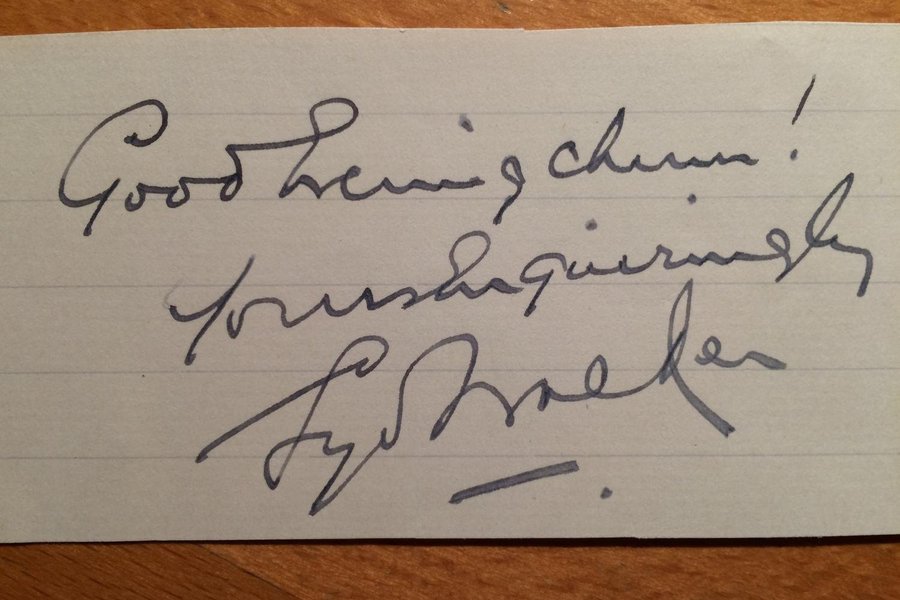 Good Evening chum!
Yours Enquiringly
Syd Walker